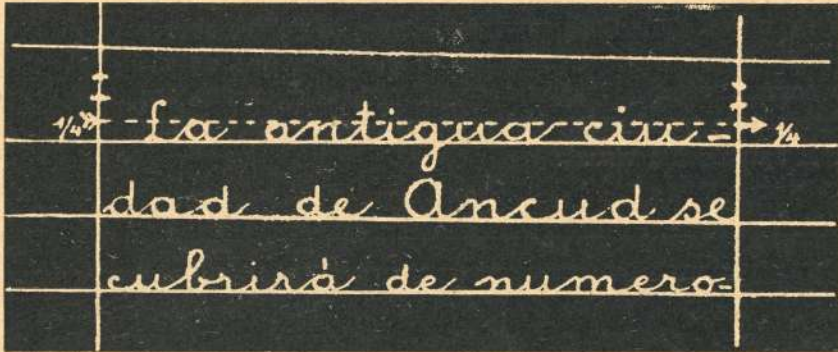 1/4 La antigua ciu- 1/4
dad de Ancud se
cubrirá de numero-